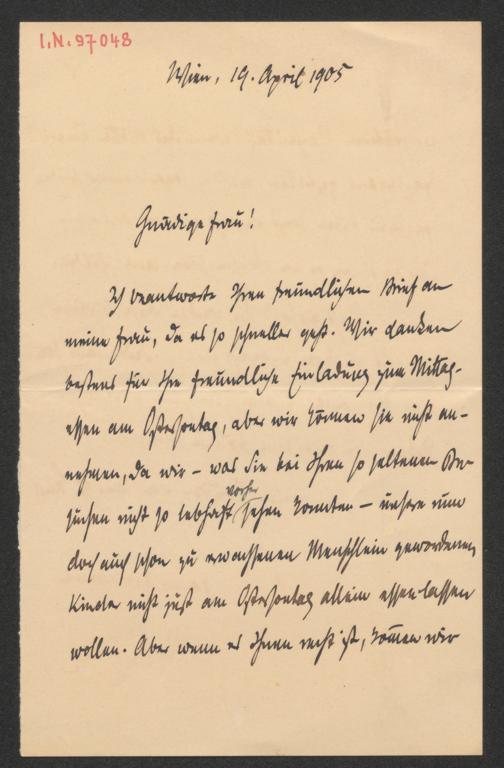 I.N. 97048
Wien, 19. April 1905
Gnädige Frau!
Ich beantworte Ihren freundlichen Brief an
meine Frau, da es so schneller geht. Wir danken
bestens für Ihre freundliche Einladung zum Mittag-
essen am Ostersonntag, aber wir können sie nicht an-
nehmen, da wir – was Sie bei Ihren so seltenen Be-
vorher
suchen nicht so lebhaft sehen konnten – unsere nun
doch auch schon zu erwachsenen Menschlein gewordenen
Kinder nicht just am Ostersonntag allein essen lassen
wollen. Aber wenn es Ihnen recht ist, kommen wir